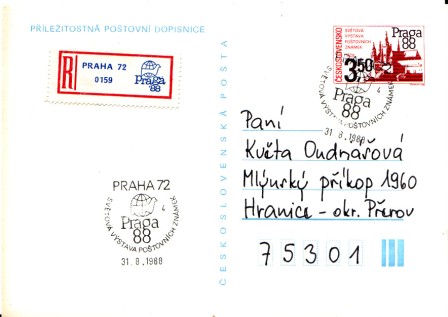 PŘÍLEŽITOSTNÁ POŠTOVNÍ DOPISNICE
R
PRAHA 72
0159
Praga
'88
ČESKOSLOVENSKÁ POŠTA
ČESKOSLOVENSKO
SVĚTOVÁ
VÝSTAVA
POŠTOVNÍCH
ZNÁMEK
Praga
88
3,50
Praga
88
SVĚTOVÁ VÝSTAVA POŠTOVNÍCH ZNÁMEK
31.8.1988
Paní
Květa Oudnařová
Mlýnský příkop 1960
Hranice - okr. Přerov
75301
PRAHA 72
Praga
88
SVĚTOVÁ VÝSTAVA POŠTOVNÍCH ZNÁMEK
31.8.1988